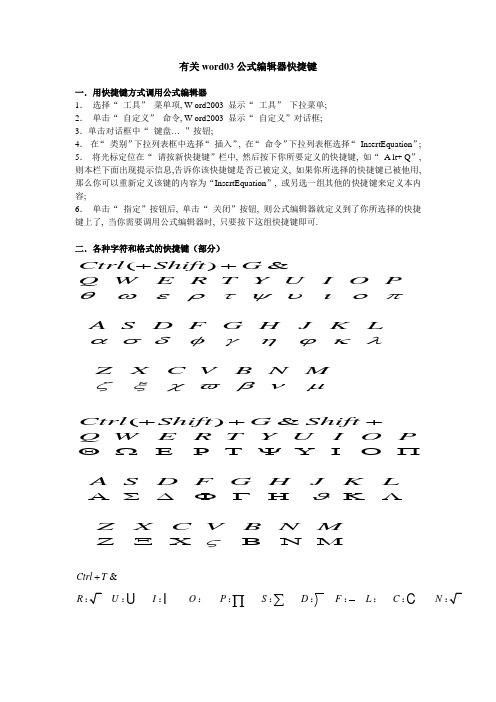 有关 word03 公式编辑器快捷键
一．用快捷键方式调用公式编辑器
1． 选择“ 工具” 菜单项, W ord2003 显示“ 工具” 下拉菜单;
2． 单击“ 自定义” 命令, W ord2003 显示“ 自定义”对话框;
3．单击对话框中“ 键盘… ”按钮;
4． 在“ 类别”下拉列表框中选择“ 插入”, 在“ 命令”下拉列表框选择“ InsertEquation”;
5． 将光标定位在“ 请按新快捷键”栏中, 然后按下你所要定义的快捷键, 如“ A lt+ Q”,
则本栏下面出现提示信息,告诉你该快捷键是否已被定义, 如果你所选择的快捷键已被他用,
那么你可以重新定义该键的内容为“InsertEquation”, 或另选一组其他的快捷键来定义本内
容;
6． 单击“ 指定”按钮后, 单击“ 关闭”按钮, 则公式编辑器就定义到了你所选择的快捷
键上了, 当你需要调用公式编辑器时, 只要按下这组快捷键即可.
二．各种字符和格式的快捷键（部分）
Ctrl(+Shift)+G &
Q W E R T Y U I O P
θ ω ε ρ τ ψ υ ι ο π
A S D F G H J K L
α σ δ φ γ η ϕ κ λ
Z X C V B N M
ζ ξ χ ϖ β ν μ
Ctrl(+Shift)+G & Shift+
Q W E R T Y U I O P
Θ Ω Ε Ρ Τ Ψ Υ Ι Ο Π
A S D F G H J K L
Α Σ Δ Φ Γ Η ϑ Κ Λ
Z X C V B N M
Ζ Ξ Χ ς Β Ν Μ
Ctrl+T &
R:√ U:∪ I:| O: P:∏ S:∑ D:⟩ F:− L: C:C N:√